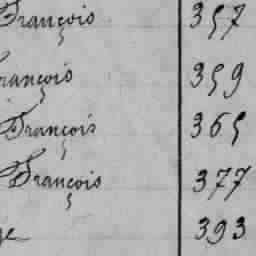 François 357
François 359
François 365
François 377
393